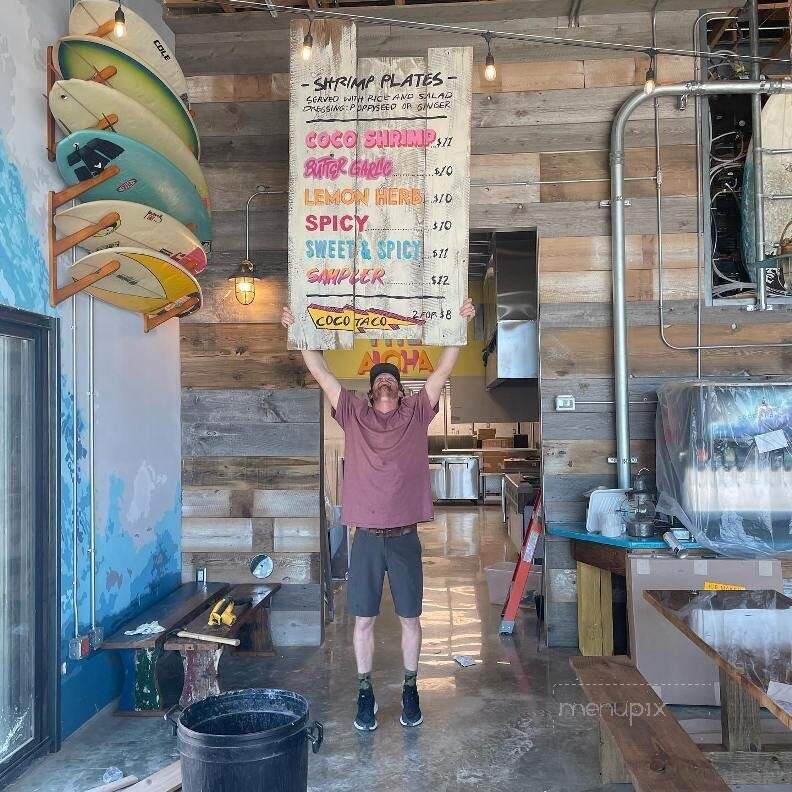 COLE
- SHRIMP PLATES -
SERVED WITH RICE AND SALAD
DRESSING: POPPYSEED OR GINGER
COCO SHRIMP $11
BUTTER GARLIC.......... $10
LEMON HERB. $10
SPICY.......... $10
SWEET & SPICY $11
SAMPLER.......... $12
COCO TACO 2 FOR $8
THE
ALOHA
menupix